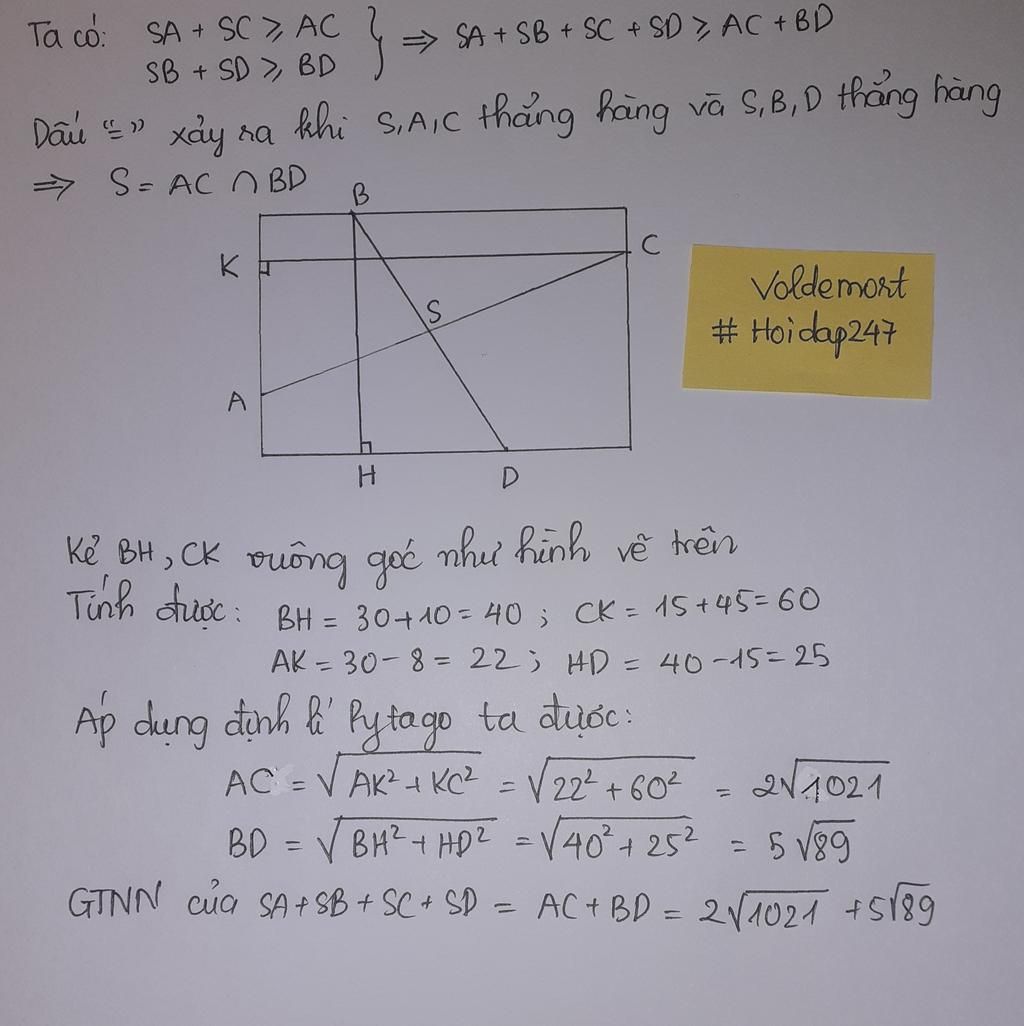 Ta có: SA + SC ⩾ AC } ⇒ SA + SB + SC + SD ⩾ AC + BD
SB + SD ⩾ BD
Dấu "=" xảy ra khi S, A, C thẳng hàng và S, B, D thẳng hàng
⇒ S = AC ∩ BD
B
K
C
S
A
H
D
Voldemort
# Hoidap247
Kẻ BH, CK vuông góc như hình vẽ trên
Tính được: BH = 30+10 = 40 ; CK = 15+45=60
AK = 30 - 8 = 22 ; HD = 40 - 15 = 25
Áp dụng định lí Pytago ta được:
AC = √(AK² + KC²) = √(22² + 60²) = 2√1021
BD = √(BH² + HD²) = √(40² + 25²) = 5√89
GTNN của SA+SB+SC+SD = AC+BD = 2√1021 + 5√89